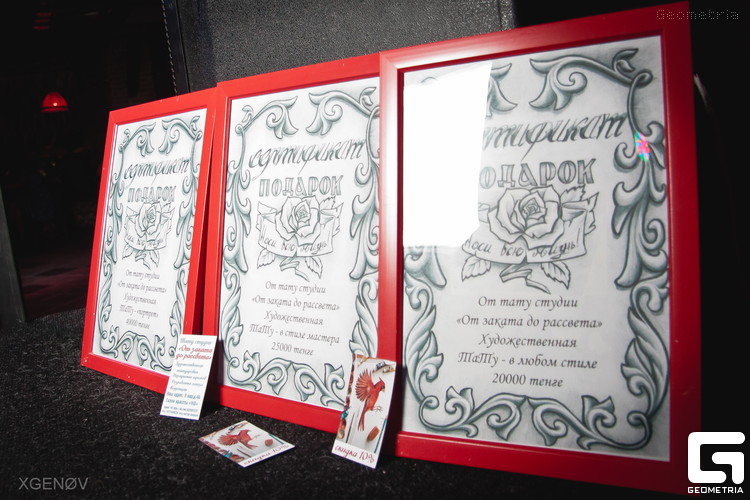 Geometria
сертификат
ПОДАРОК
носи всю жизнь!
От тату студии
«От заката до рассвета»
Художественная
ТаТу - портрет
40000 тенге
сертификат
ПОДАРОК
Носи всю жизнь!
От тату студии
«От заката до рассвета»
Художественная
ТаТу - в стиле мастера
25000 тенге
ртификат
ОДАРОК
носи всю жизнь!
От тату студии
«От заката до рассвета»
Художественная
ТаТу - в любом стиле
20000 тенге
Тату студия
«От заката
до рассвета»
скидка 10%
XGENØV
GEOMETRIA